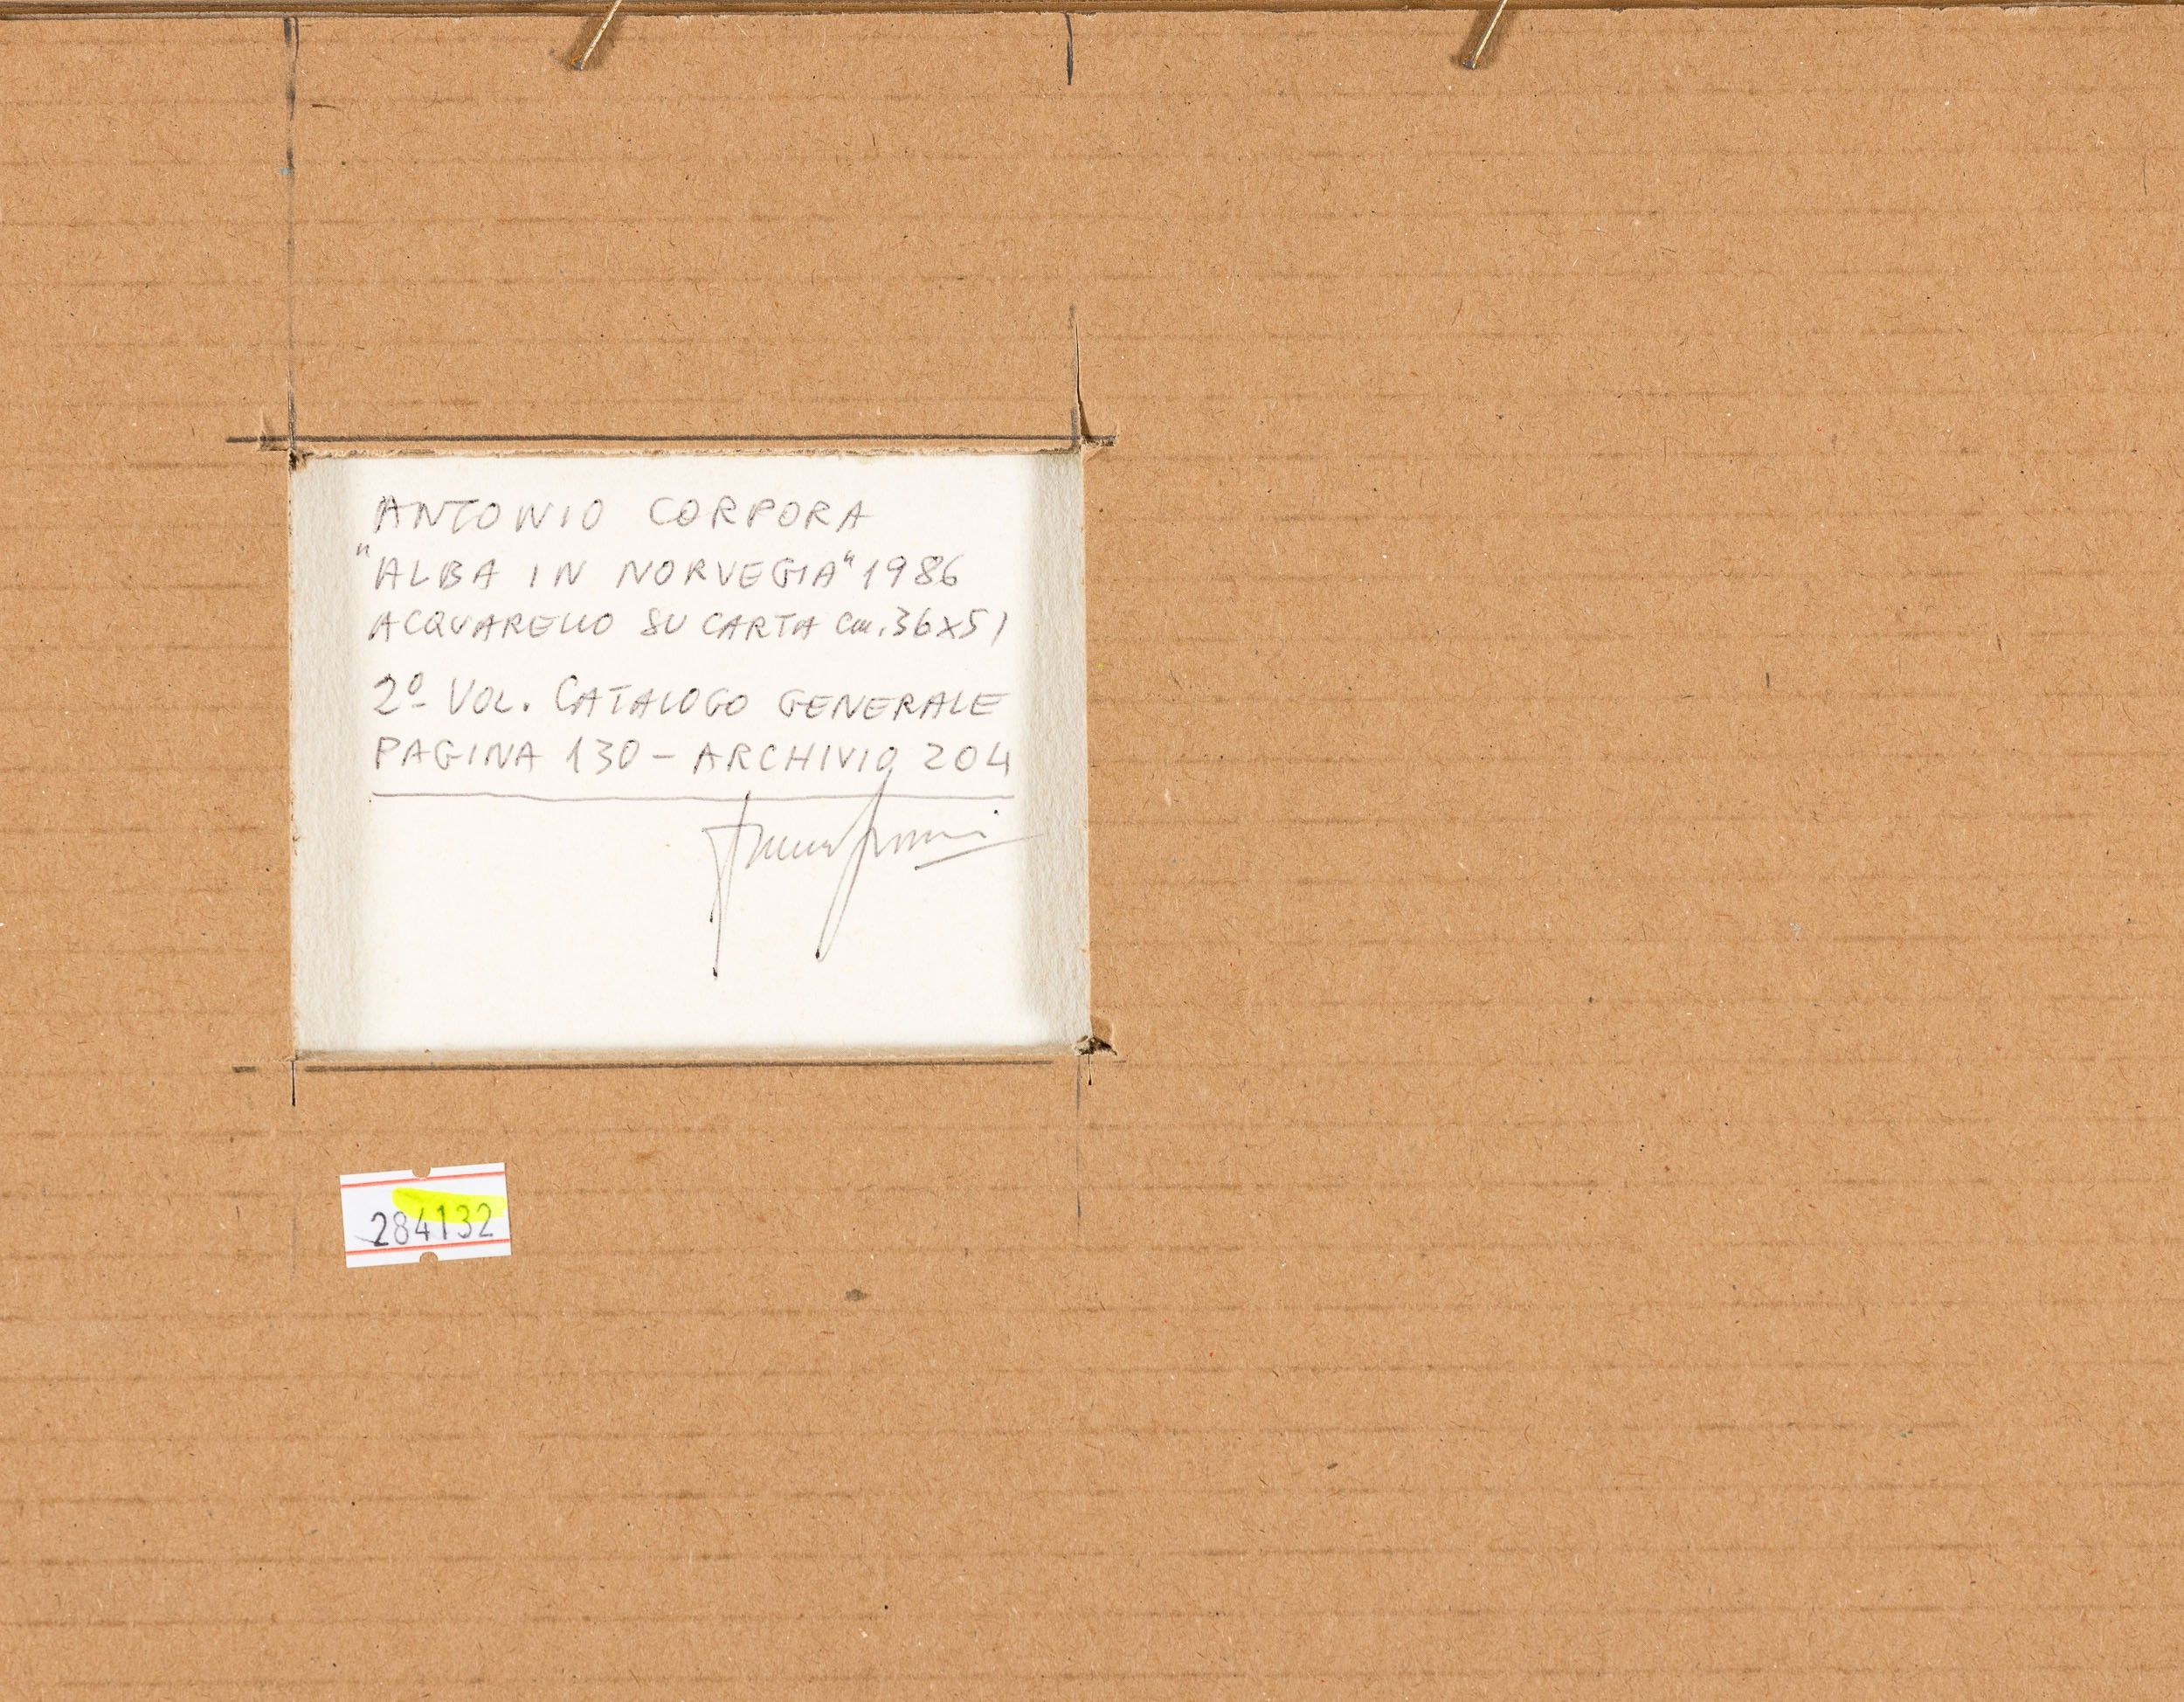 ANTONIO CORPORA
"ALBA IN NORVEGIA" 1986
ACQUARELLO SU CARTA cm. 36x51
2º VOL. CATALOGO GENERALE
PAGINA 130 - ARCHIVIO 204
284132